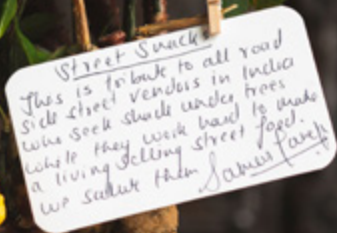 Street Snack
This is tribute to all road
side street vendors in India
who seek shade under trees
while they work hard to make
a living selling street food.
we salute them